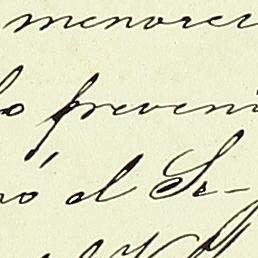 menores
lo preveni
nó el Se-